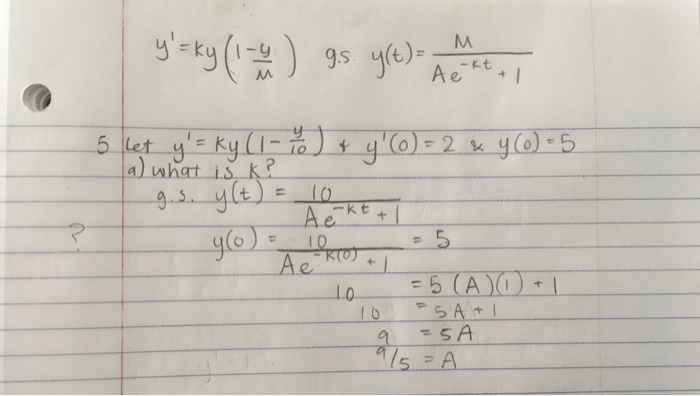 y' = ky(1 - y/M) g.s. y(t) = M / (Ae^-kt + 1)
5 Let y' = ky(1 - y/10) & y'(0) = 2 & y(0) = 5
a) what is k?
g.s. y(t) = 10 / (Ae^-kt + 1)
? y(0) = 10 / (Ae^-k(0) + 1) = 5
10 = 5(A)(1) + 1
10 = 5A + 1
9 = 5A
9/5 = A